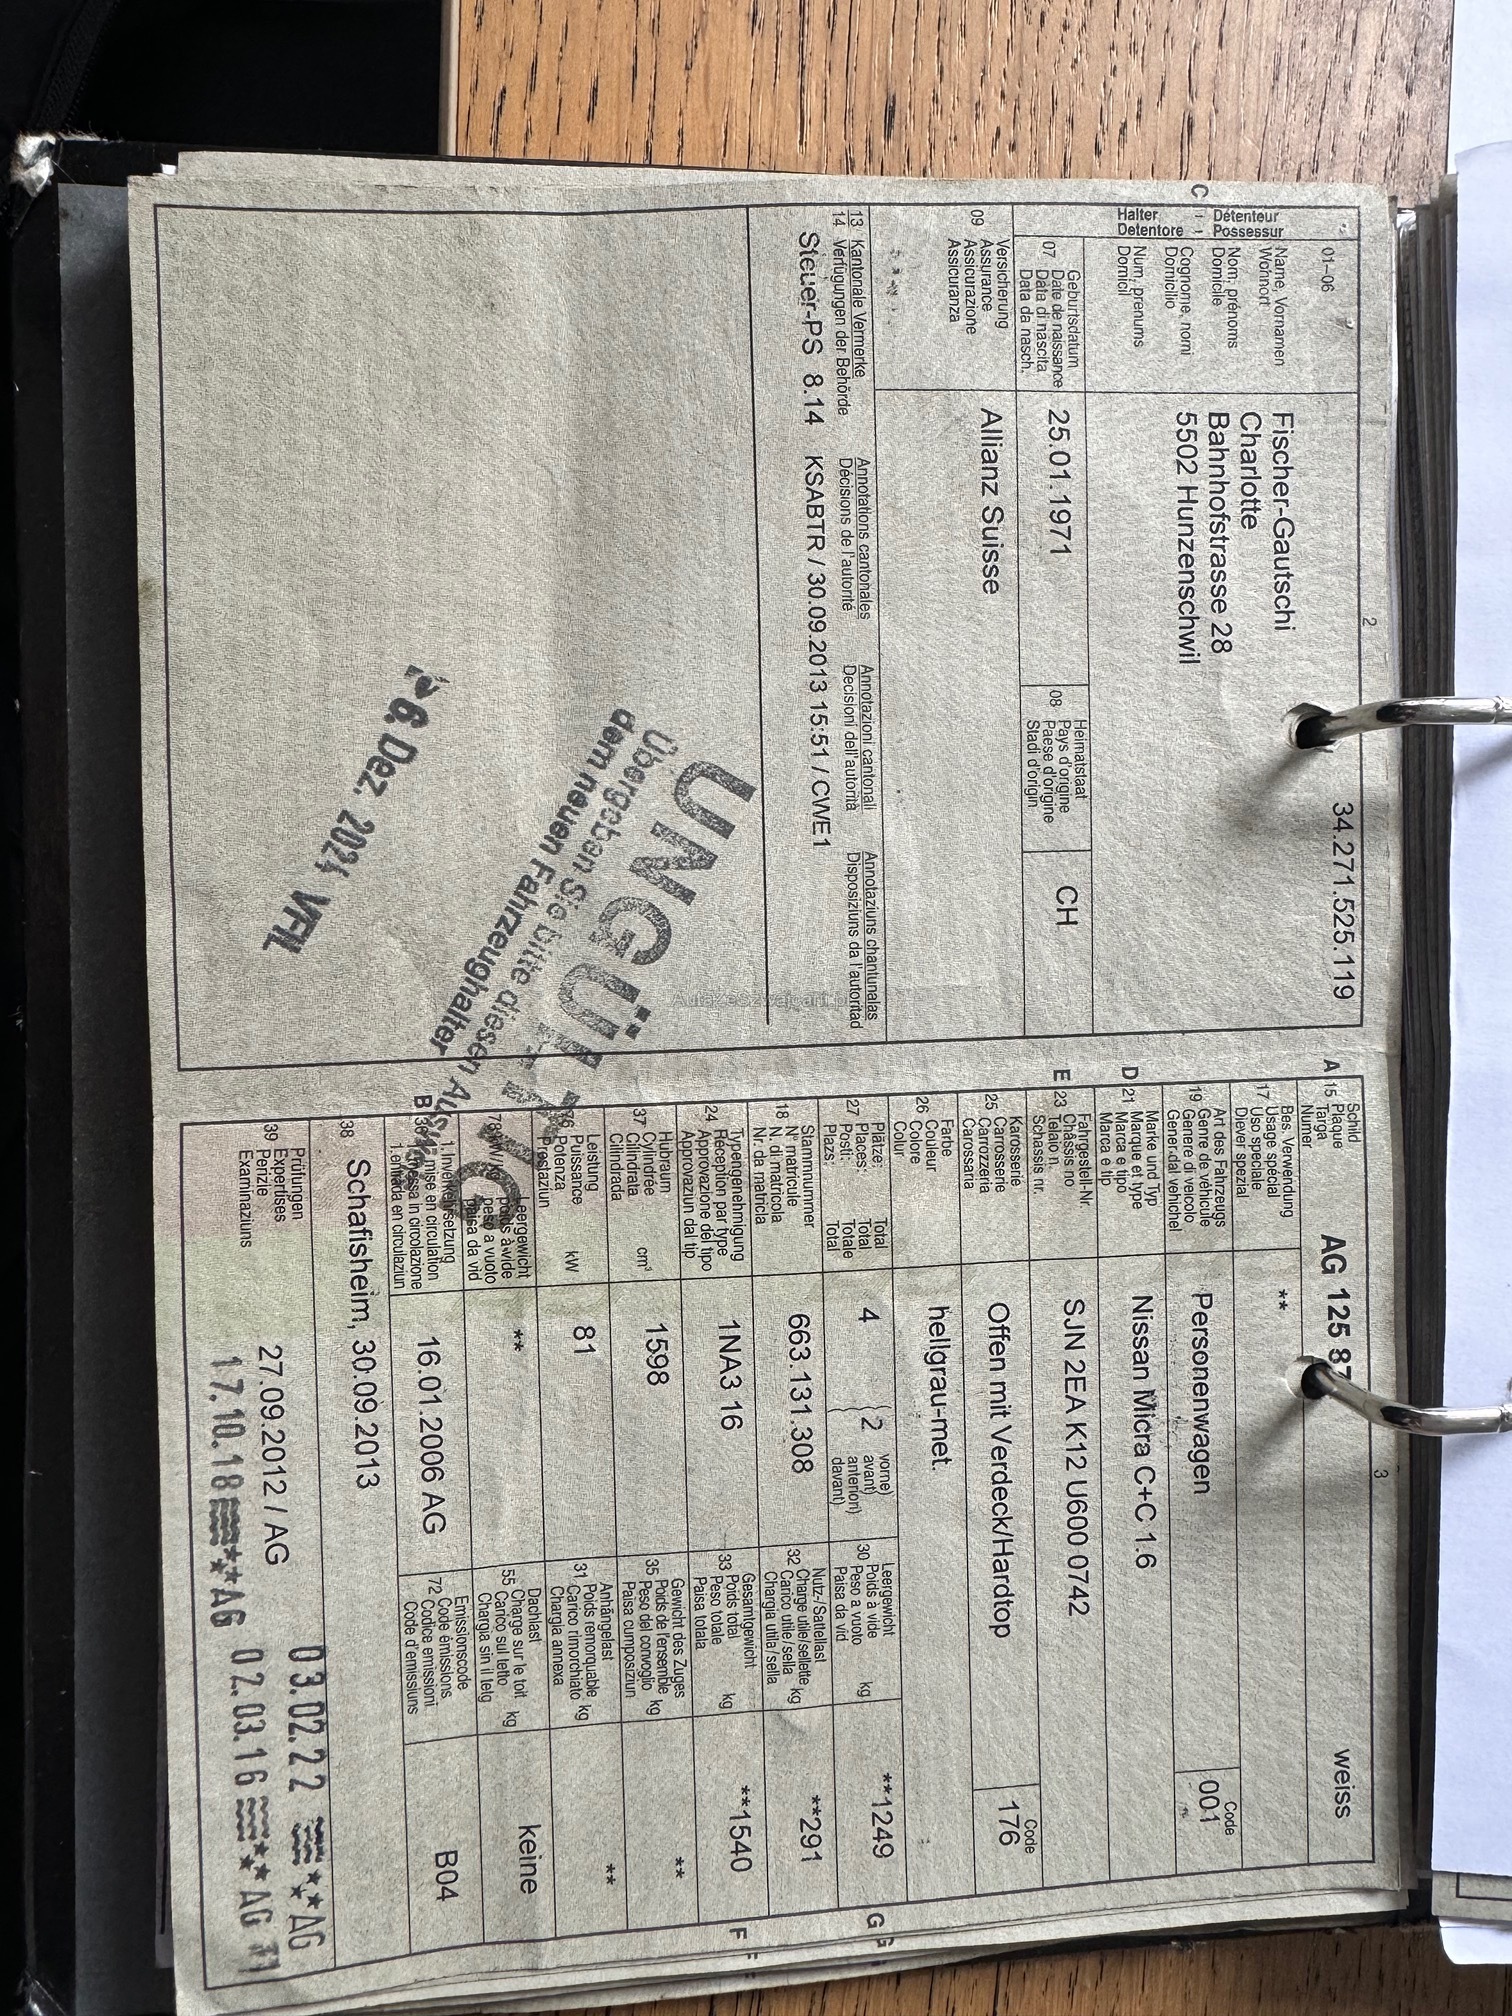 2
34.271.525.119
01–06
C
Halter - Détenteur
Detentore - Possessur
Name, Vornamen
Wohnort
Nom, prénoms
Domicile
Cognome, nomi
Domicilio
Num, prenums
Domicil
Fischer-Gautschi
Charlotte
Bahnhofstrasse 28
5502 Hunzenschwil
Geburtsdatum
07 Date de naissance
Data di nascita
Data da nasch.
25.01.1971
Heimatstaat
08 Pays d'origine
Paese d'origine
Stadi d'origin
CH
Versicherung
09 Assurance
Assicurazione
Assicuranza
Allianz Suisse
13 Kantonale Vermerke Annotations cantonales Annotazioni cantonali Annotaziuns chantunalas
14 Verfügungen der Behörde Décisions de l'autorité Decisioni dell'autorità Disposiziuns da l'autoritad
Steuer-PS 8.14 KSABTR / 30.09.2013 15:51 / CWE1
UNGÜLTIG
Übergeben Sie bitte diesen Ausweis
dem neuen Fahrzeughalter
6. Dez. 2024 VFL
3
A
Schild
15 Plaque
Targa
Numer
AG 125 87
weiss
Bes. Verwendung
17 Usage spécial
Uso speciale
Diever spezial
**
Art des Fahrzeugs
19 Genre de véhicule
Genere di veicolo
Gener dal vehichel
Personenwagen
Code
001
D
Marke und Typ
21 Marque et type
Marca e tipo
Marca e tip
Nissan Micra C+C 1.6
E
Fahrgestell-Nr.
23 Châssis no
Telaio n.
Schassis nr.
SJN 2EA K12 U600 0742
Karosserie
25 Carrosserie
Carrozzeria
Carossaria
Offen mit Verdeck/Hardtop
Code
176
Farbe
26 Couleur
Colore
Colur
hellgrau-met.
Plätze: Total
27 Places: Total
Posti: Totale
Plazs: Total
4
2
vorne)
avant)
anteriori)
davant)
Leergewicht
30 Poids à vide
Peso a vuoto kg
Paisa da vid
**1249
G
Stammnummer
18 N° matricule
N. di matricola
Nr. da matricla
663.131.308
Nutz-/Sattellast
32 Charge utile/sellette kg
Carico utile/sella
Chargia utila/sella
**291
Typengenehmigung
24 Réception par type
Approvazione del tipo
Approvaziun dal tip
1NA3 16
Gesamtgewicht
33 Poids total
Peso totale kg
Paisa totala
**1540
F
Hubraum
37 Cylindrée
Cilindrata cm³
Cilindrada
1598
Gewicht des Zuges
35 Poids de l'ensemble kg
Peso del convoglio
Paisa cumposiziun
**
Leistung
76 Puissance
Potenza kW
Prestaziun
81
Anhängelast
31 Poids remorquable kg
Carico rimorchiato
Chargia annexa
**
Leergewicht
poids à vide
peso a vuoto
paisa da vid
**
Dachlast
55 Charge sur le toit
Carico sul tetto kg
Chargia sin il tetg
keine
B
1. Inverkehrsetzung
36 1re mise en circulation
1.a messa in circolazione
1. entrada en circulaziun
16.01.2006 AG
Emissionscode
72 Code émissions
Codice emissioni
Code d'emissiuns
B04
38
Schafisheim, 30.09.2013
Prüfungen
39 Expertises
Perizie
Examinaziuns
27.09.2012 / AG
03.02.22 AG
17.10.18 AG
02.03.16 AG 11